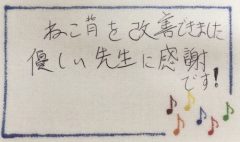 ねこ背を改善できました
優しい先生に感謝
です!